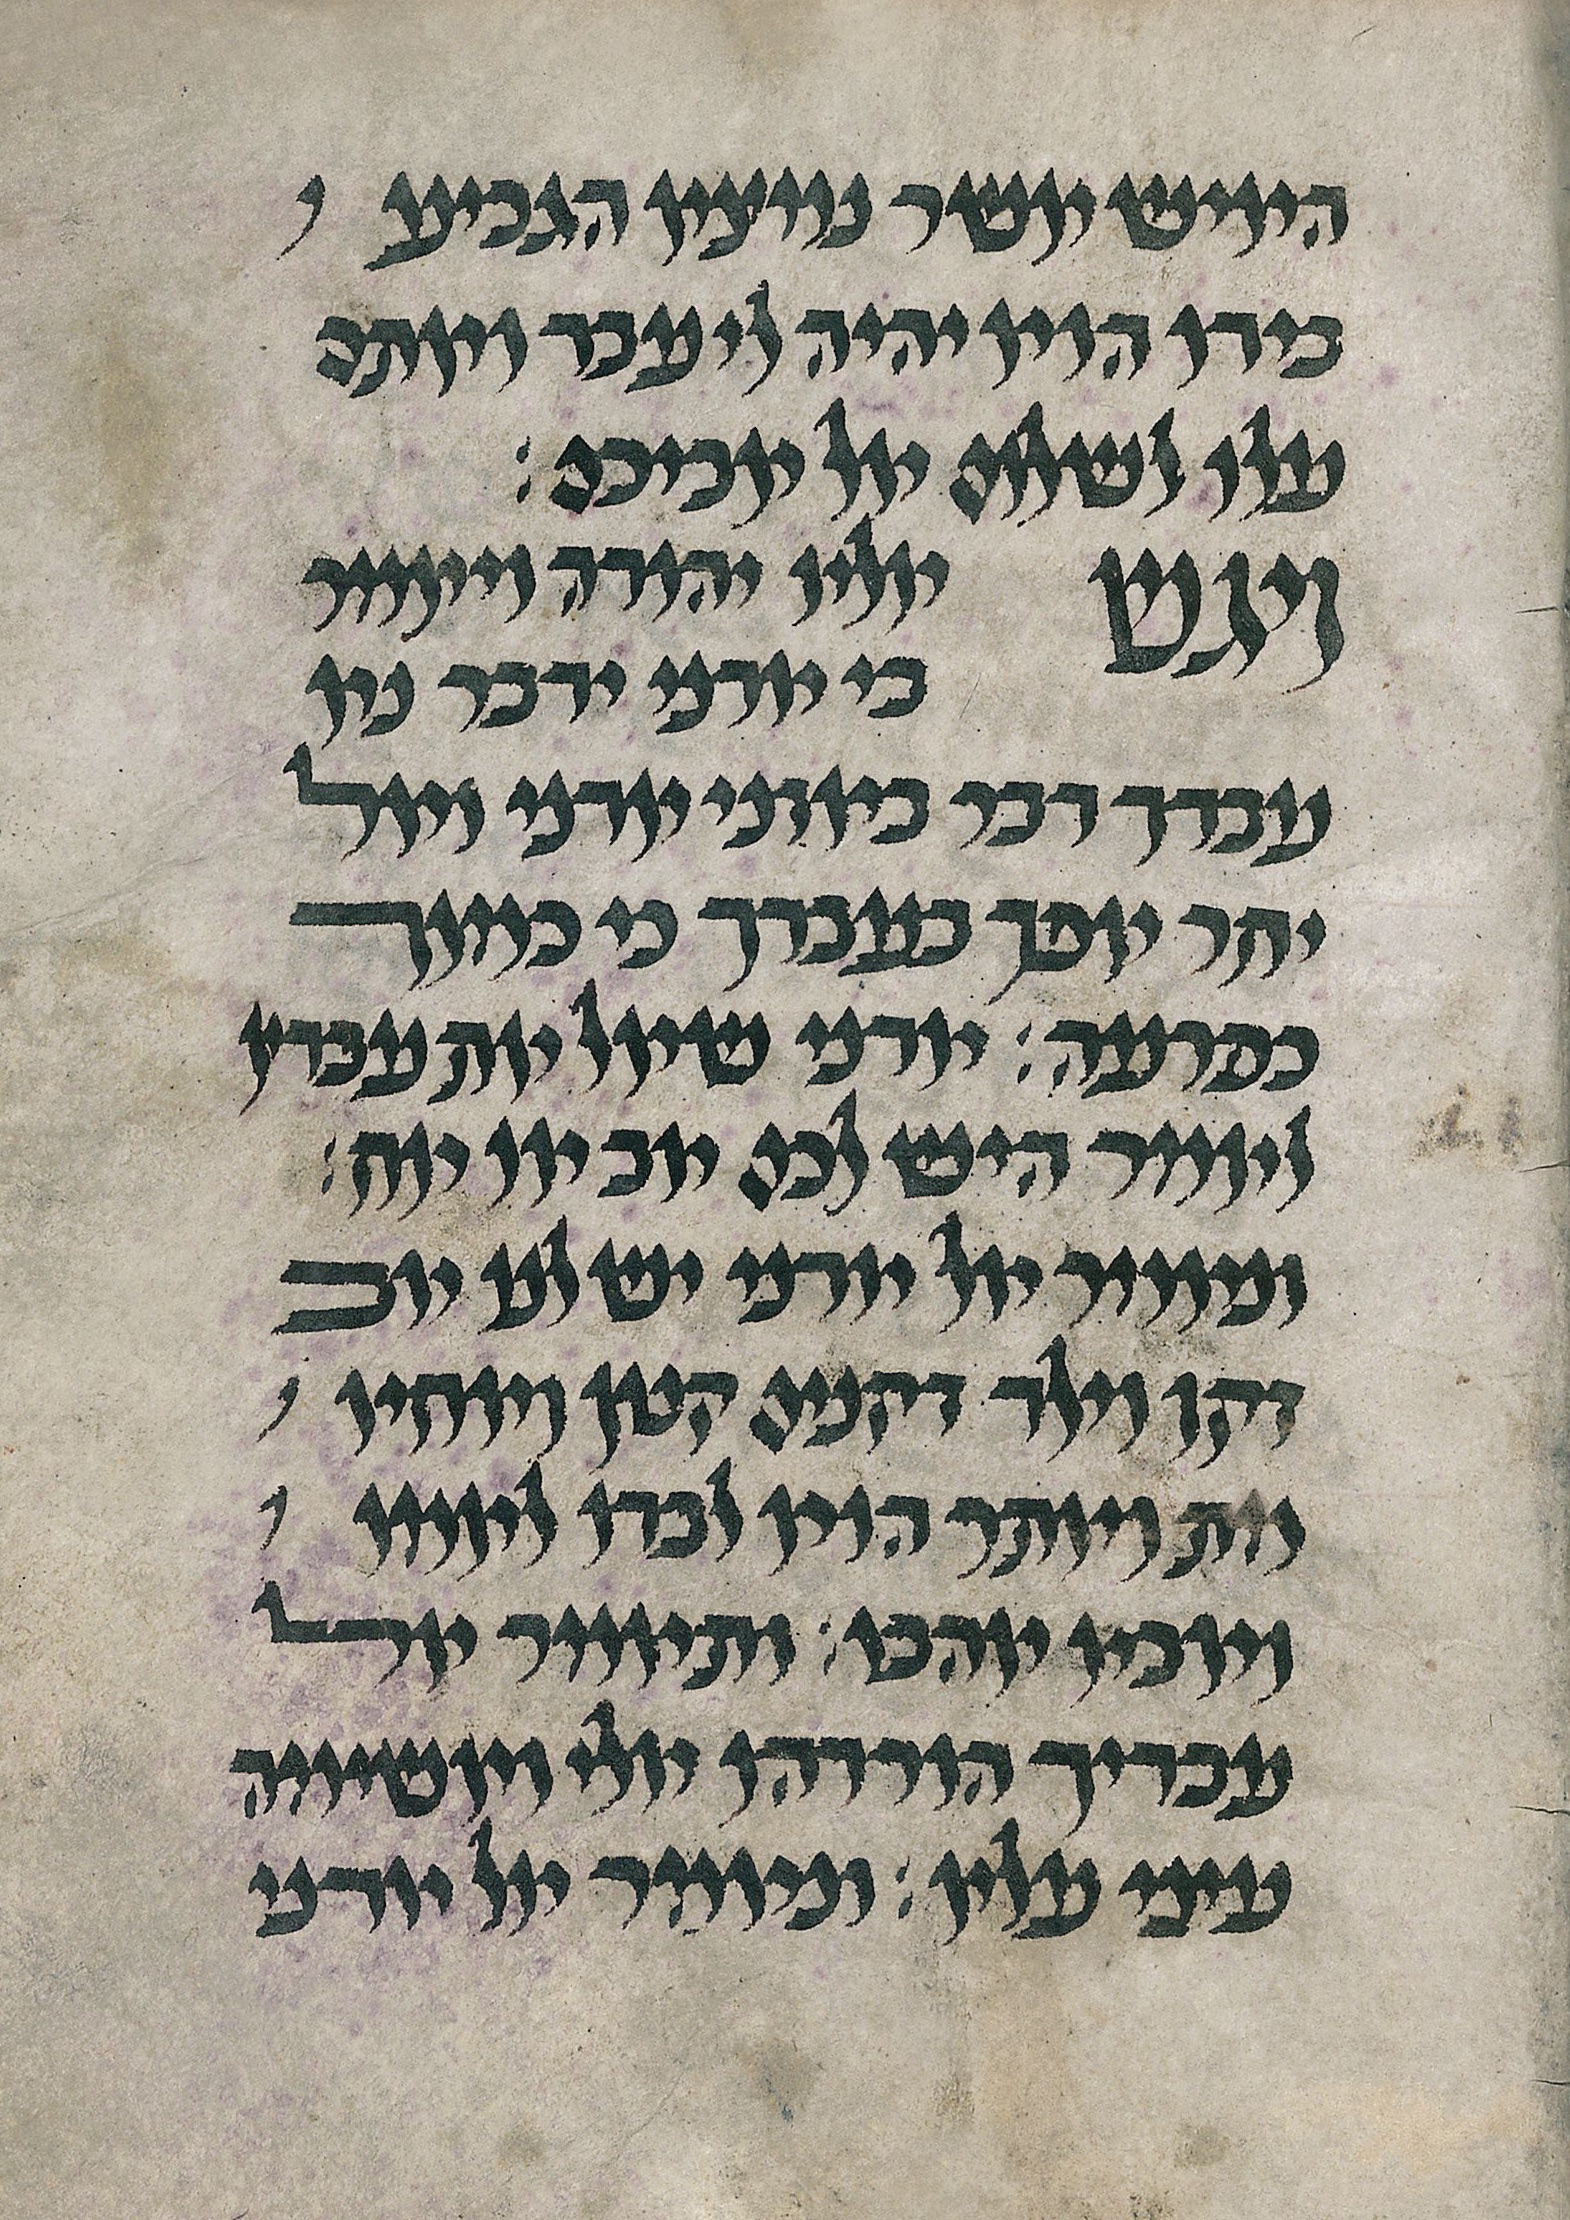 האיש אשר נמצא הגביע
בידו הוא יהיה לי עבד ואתם
עלו לשלום אל אביכם:
ויגש אליו יהודה ויאמר
בי אדני ידבר נא
עבדך דבר באזני אדני ואל
יחר אפך בעבדך כי כמוך
כפרעה: אדני שאל את עבדיו
לאמר היש לכם אב או אח:
ונאמר אל אדני יש לנו אב
זקן וילד זקנים קטן ואחיו
מת ויותר הוא לבדו לאמו
ואביו אהבו: ותאמר אל
עבדיך הורדהו אלי ואשימה
עיני עליו: ונאמר אל אדני